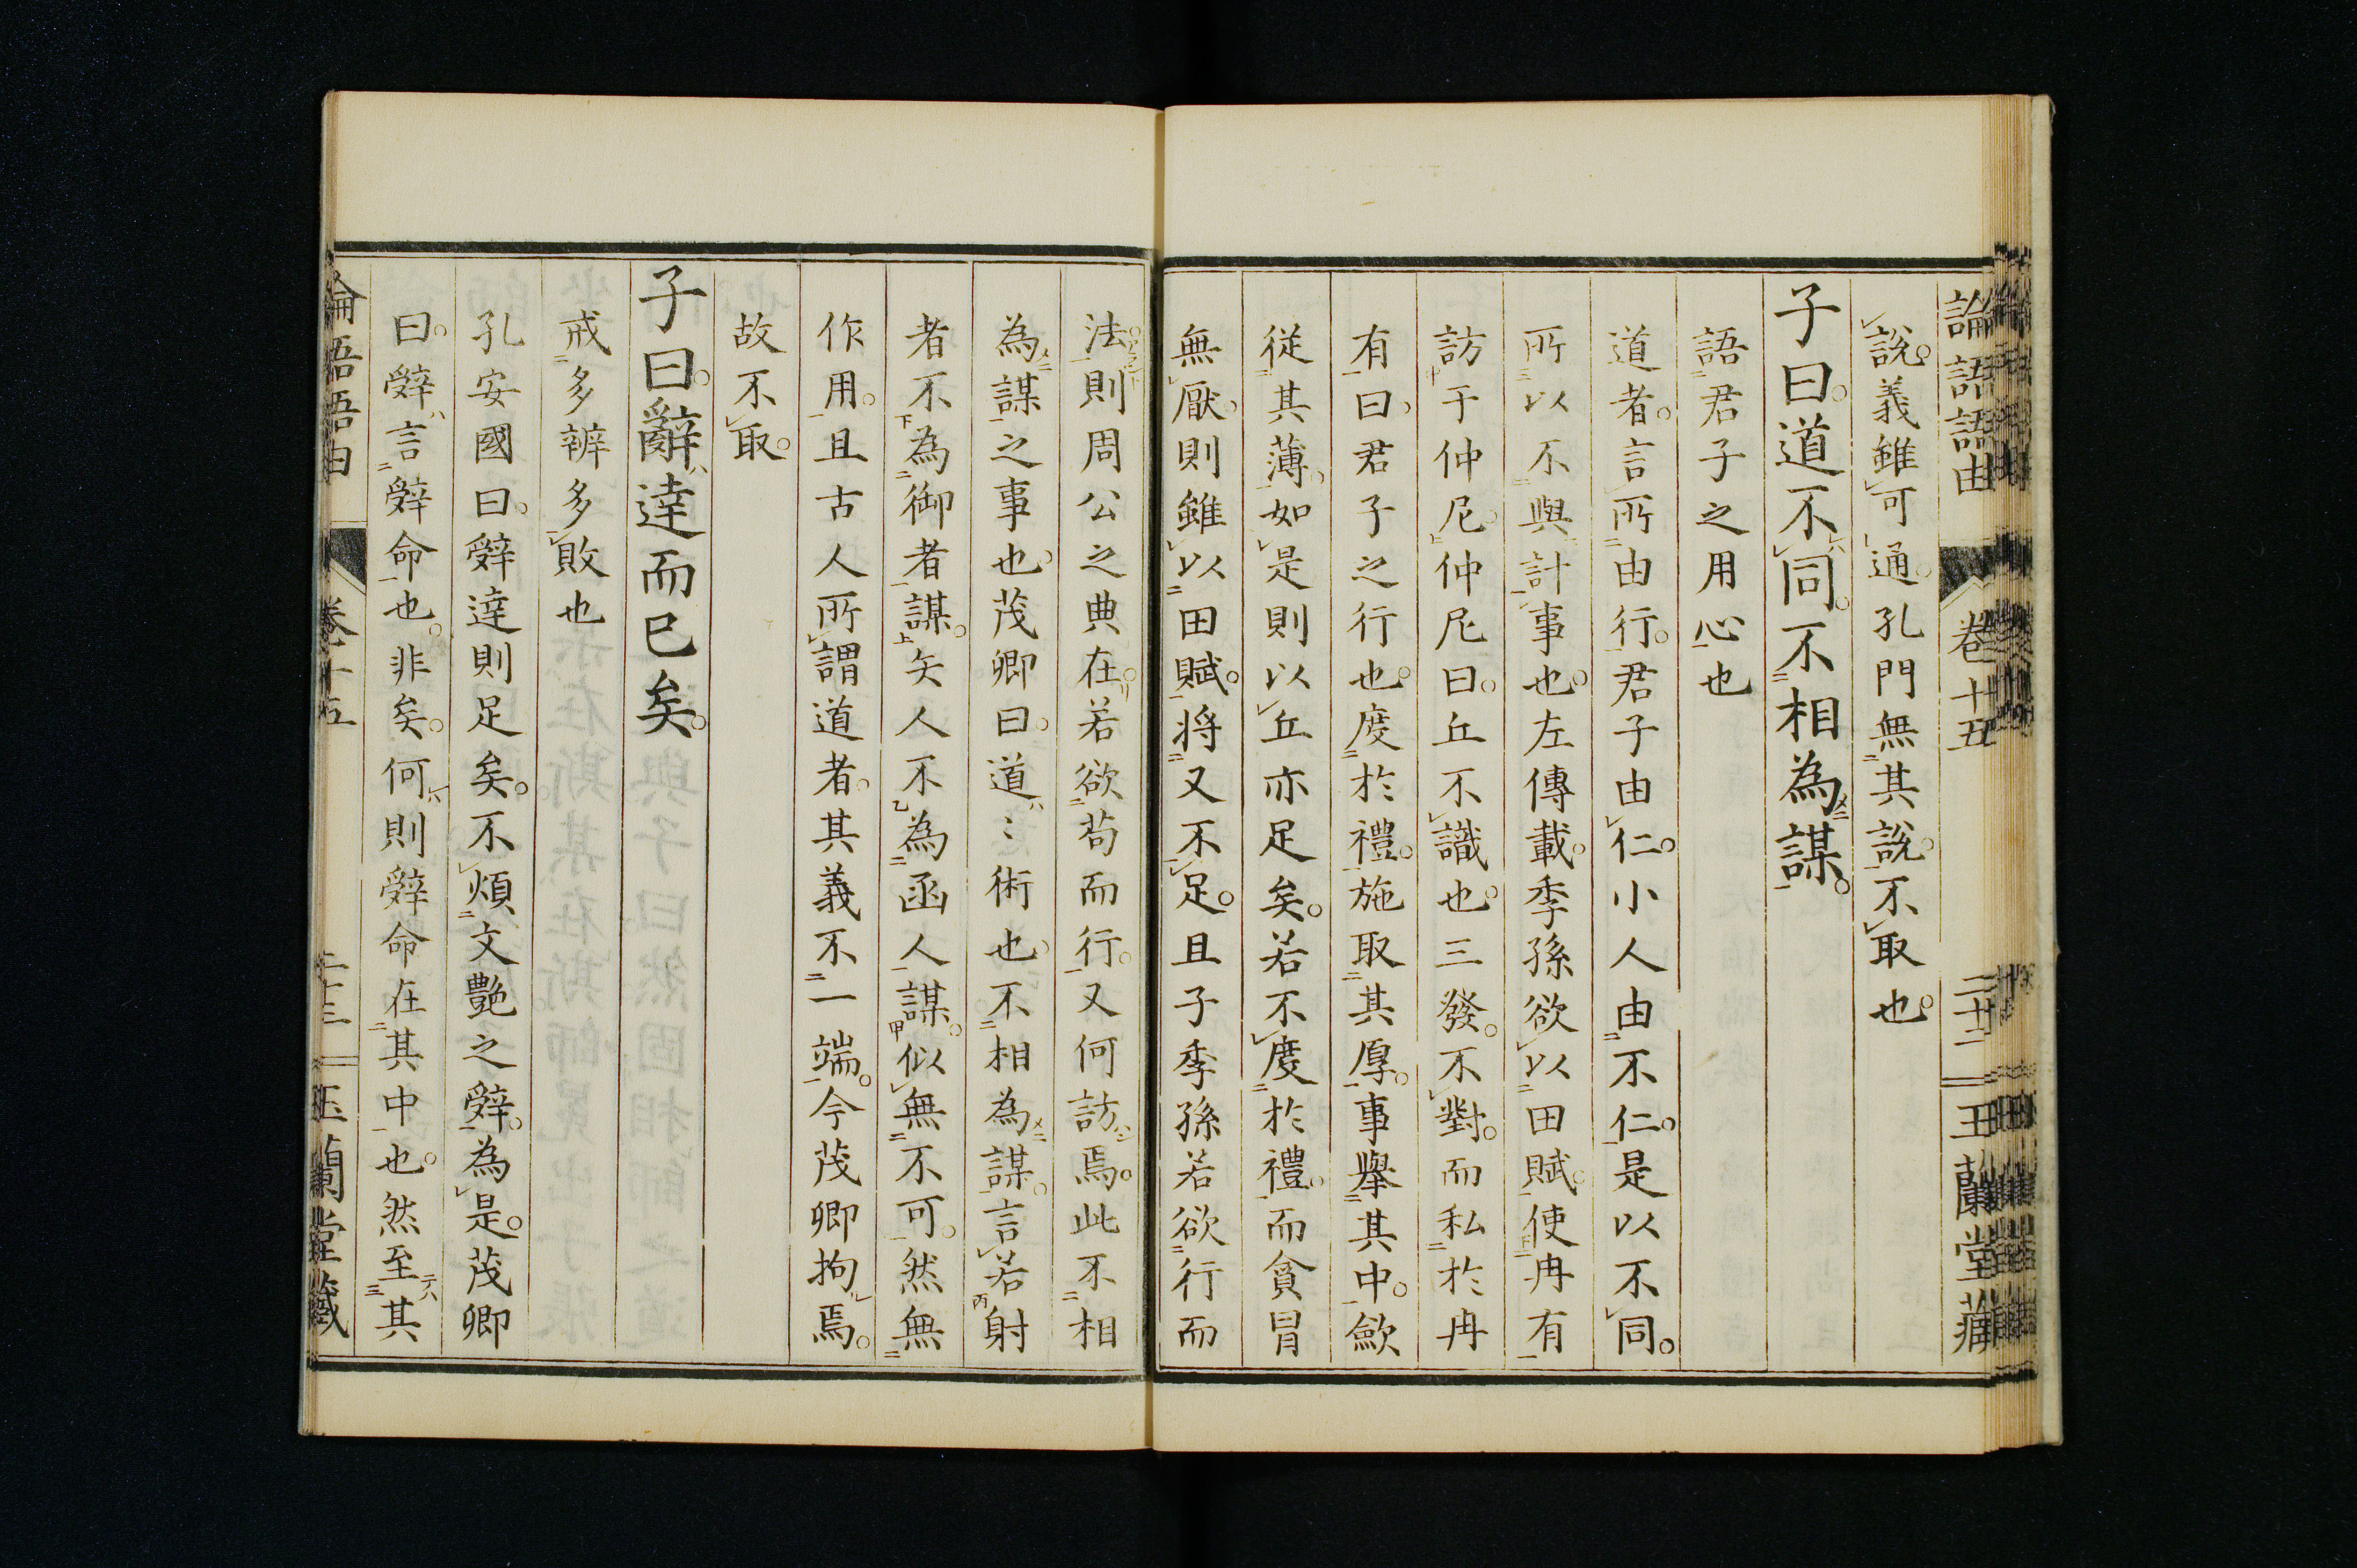 論語語由 卷十五 二十二 玉蘭堂藏
說。義雖可通。孔門無其說。不取也。
子曰。道不同。不相為謀。
語君子之用心也
道者。言所由行。君子由仁。小人由不仁。是以不同。
所以不與計事也。左傳載。季孫欲以田賦。使冉有
訪于仲尼。仲尼曰。丘不識也。三發。不對。而私於冉
有曰。君子之行也。度於禮。施取其厚。事舉其中。歛
從其薄。如是則以丘亦足矣。若不度於禮。而貪冒
無厭。則雖以田賦。將又不足。且子季孫若欲行而
法。則周公之典在。若欲苟而行。又何訪焉。此不相
為謀之事也。茂卿曰。道〻術也。不相為謀。言若射
者不為御者謀。矢人不為函人謀。似無不可。然無
作用。且古人所謂道者。其義不一端。今茂卿拘焉。
故不取。
子曰。辭達而已矣。
戒多辨多敗也
孔安國曰。辤達則足矣。不煩文艷之辤。為是。茂卿
曰。辤言辤命也。非矣。何則辤命在其中也。然至其
論語語由 卷十五 二十三 玉蘭堂藏